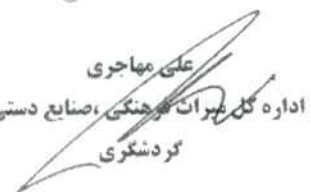 علی مهاجری
اداره کل میراث فرهنگی ،صنایع دستی
گردشگری